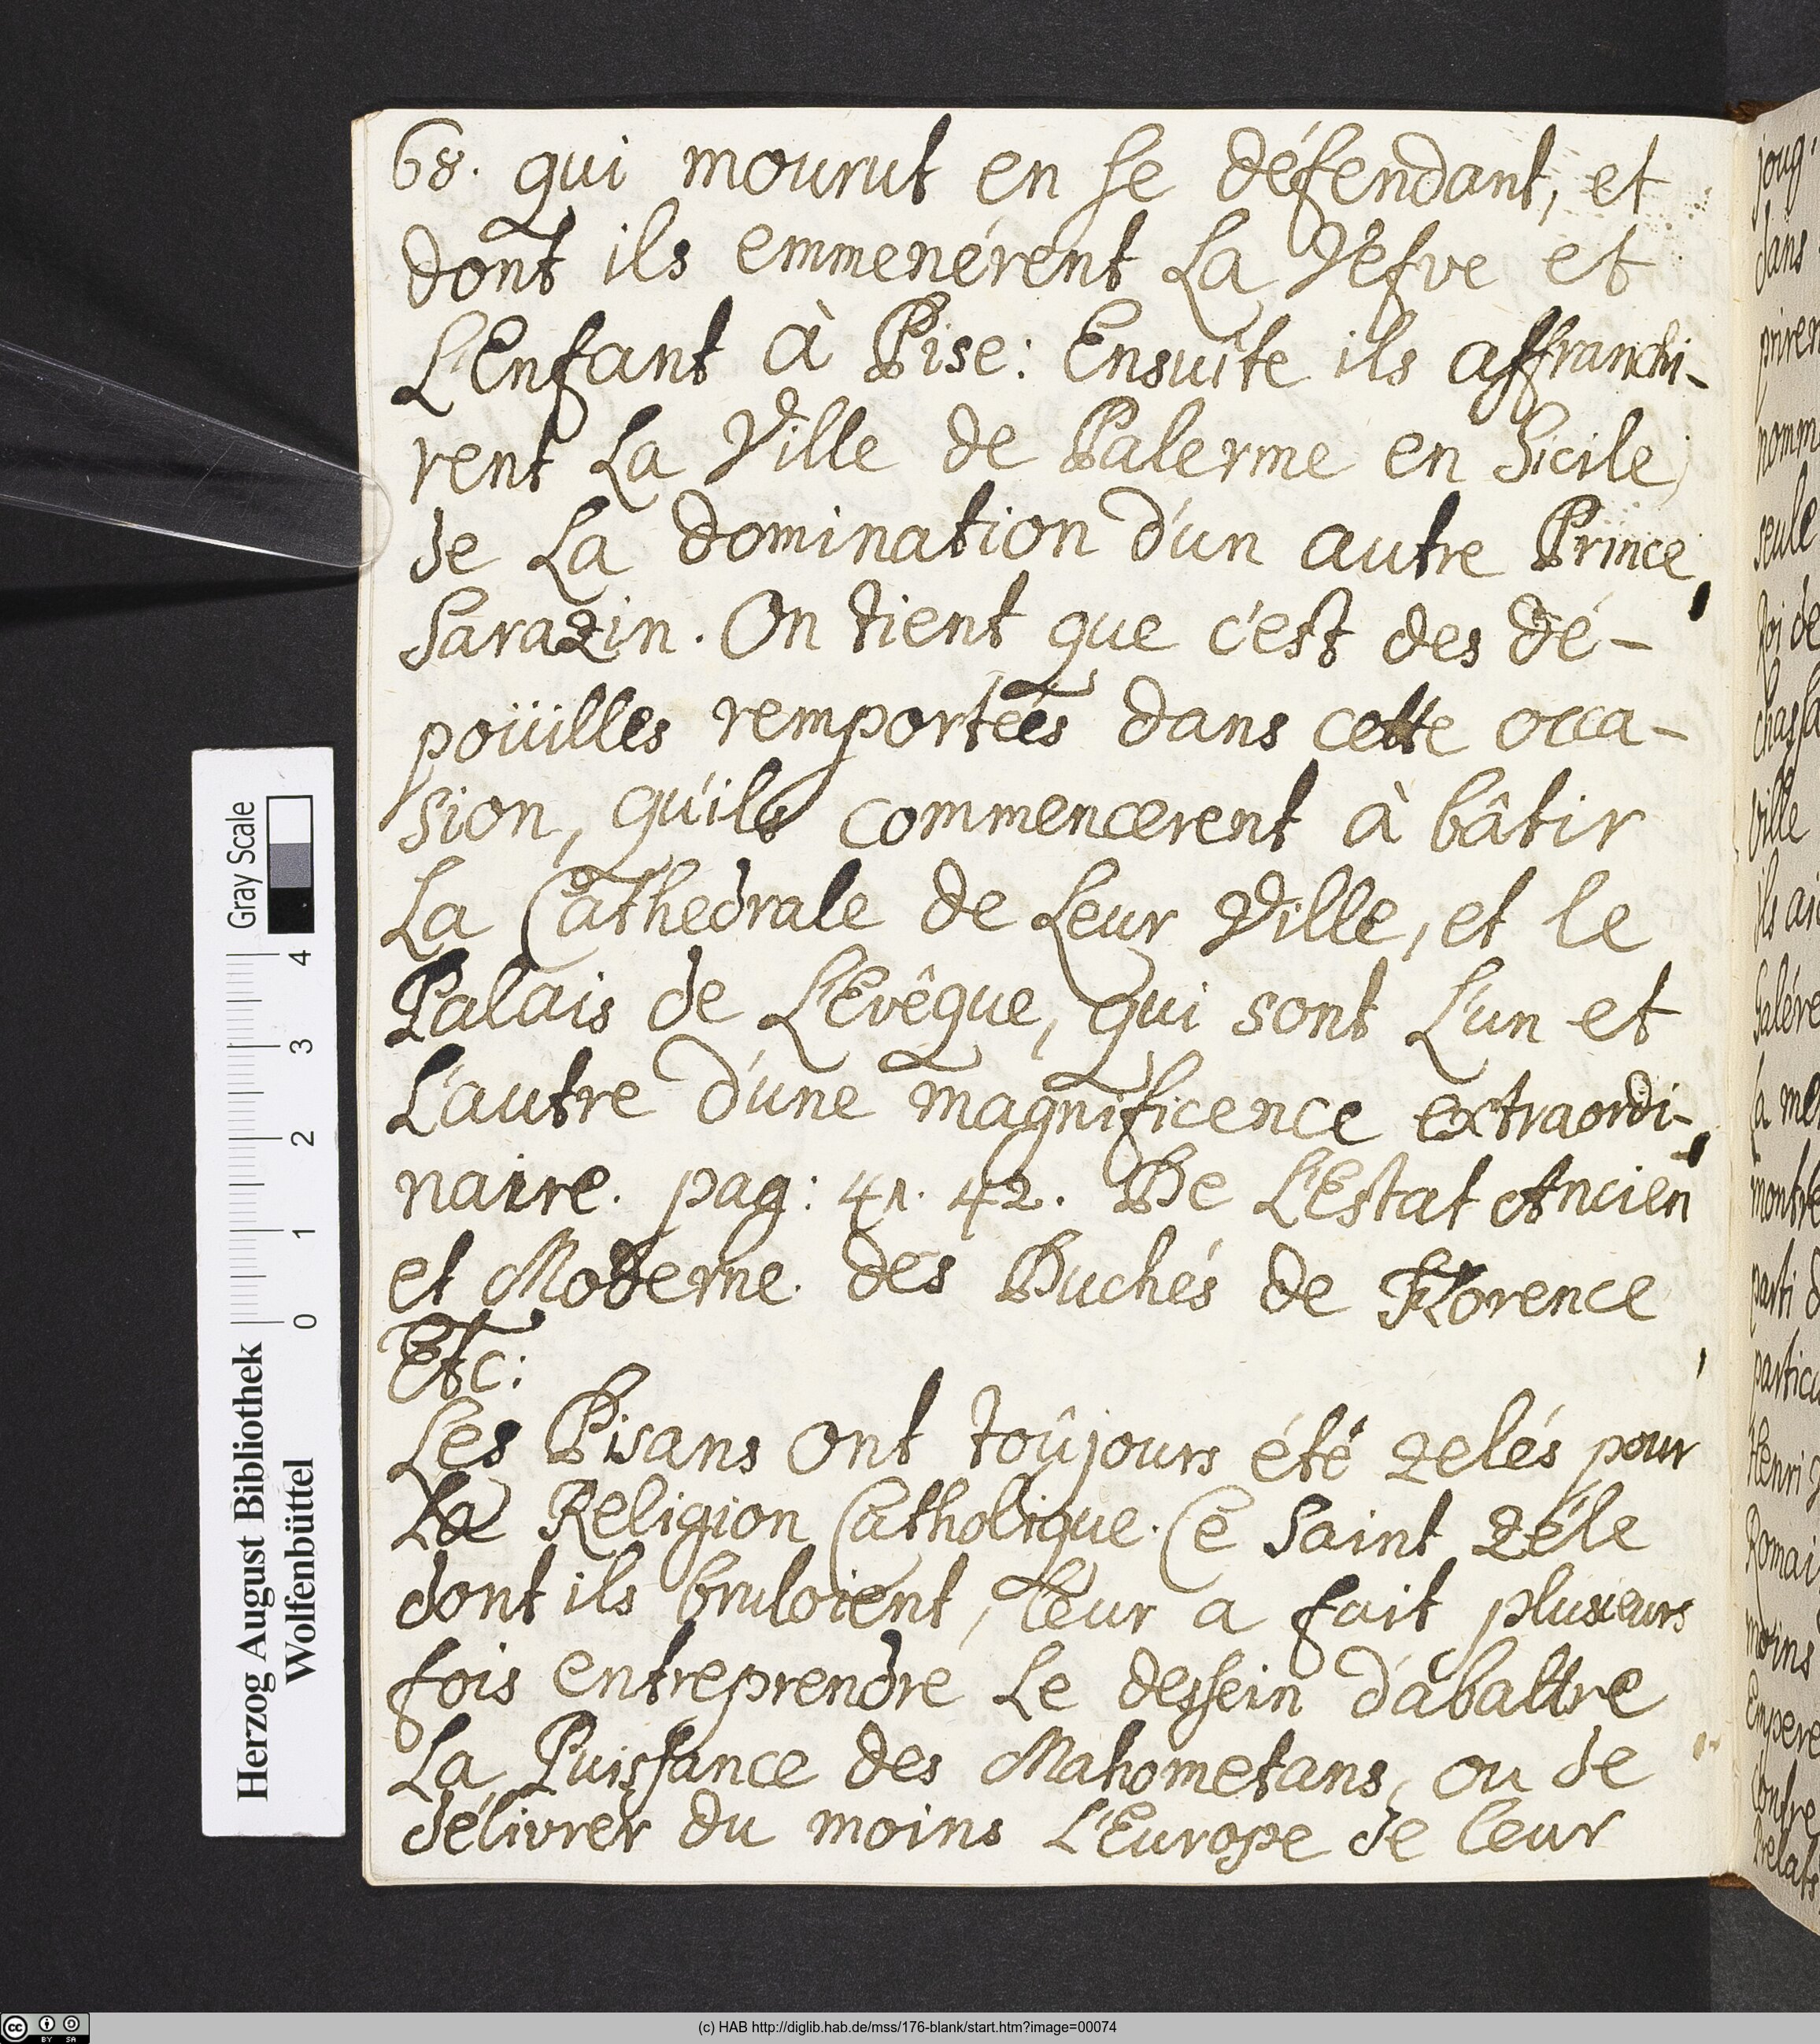 68. qui mourut en se défendant, et
dont ils emmenérent La Véfve et
L'Enfant à Pise: Ensuite ils affranchi-
rent La Ville de Palerme en Sicile,
de La domination d'un autre Prince
Sarazin. On tient que c'est des dé-
poüilles remportées dans cette occa-
sion, qu'ils commencerent à bâtir
La Cathedrale de Leur Ville, et le
Palais de L'Evêque, qui sont L'un et
L'autre d'une magnificence extraordi-
naire. pag: 41. 42. De L'Estat Ancien
et Moderne des Duchés de Florence
Etc:
Les Pisans ont toûjours été zelés pour
La Religion Catholique. Ce Saint zéle
dont ils bruloient, leur a fait plusieurs
fois entreprendre Le dessein d'abattre
La Puissance des Mahometans, ou de
délivrer du moins L'Europe de leur
joug.
dans
seule
ville
Gray Scale
4
3
2
1
0
Herzog August Bibliothek
Wolfenbüttel
cc BY SA
(c) HAB http://diglib.hab.de/mss/176-blank/start.htm?image=00074